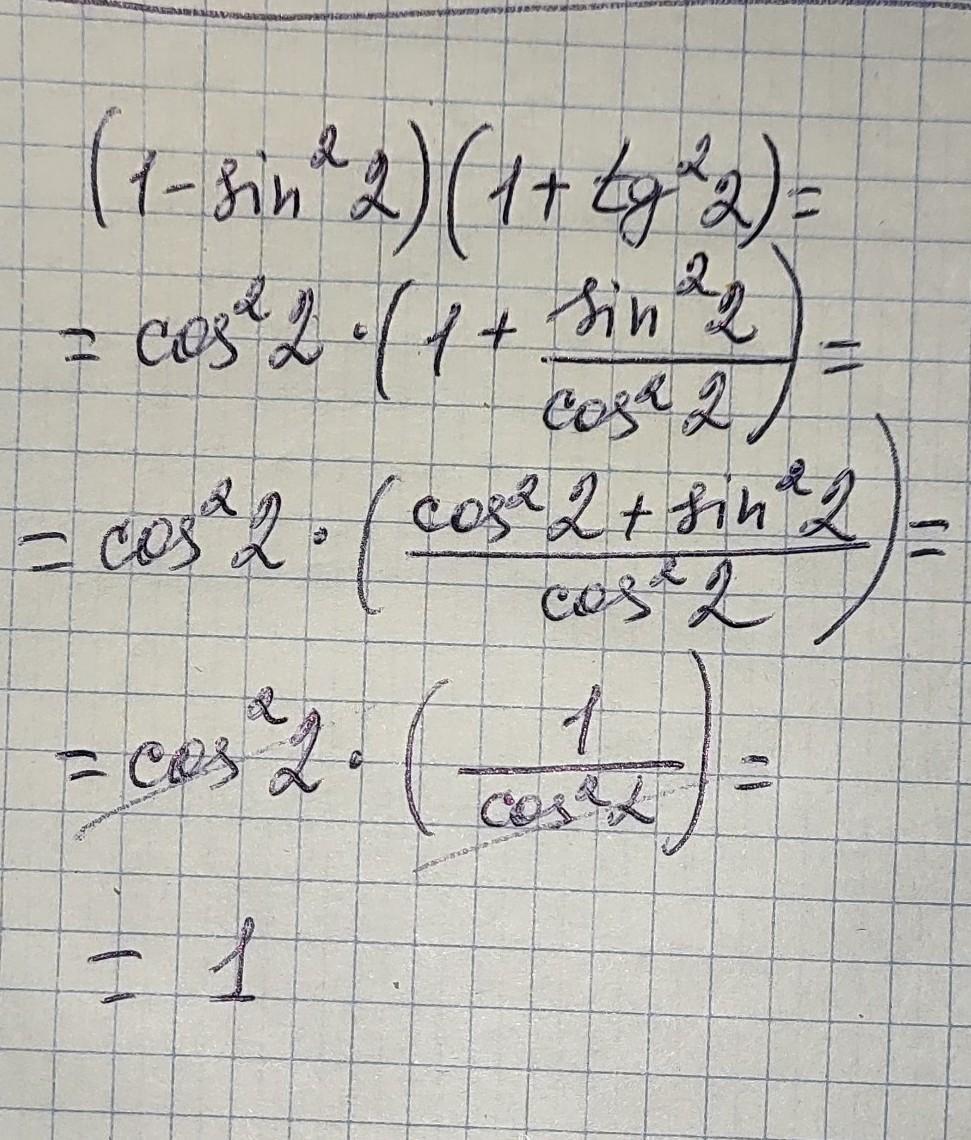 (1-sin²2)(1+tg²2)=
=cos²2·(1+\frac{sin²2}{cos²2})=
=cos²2·(\frac{cos²2+sin²2}{cos²2})=
=cos²2·(\frac{1}{cos²2})=
=1